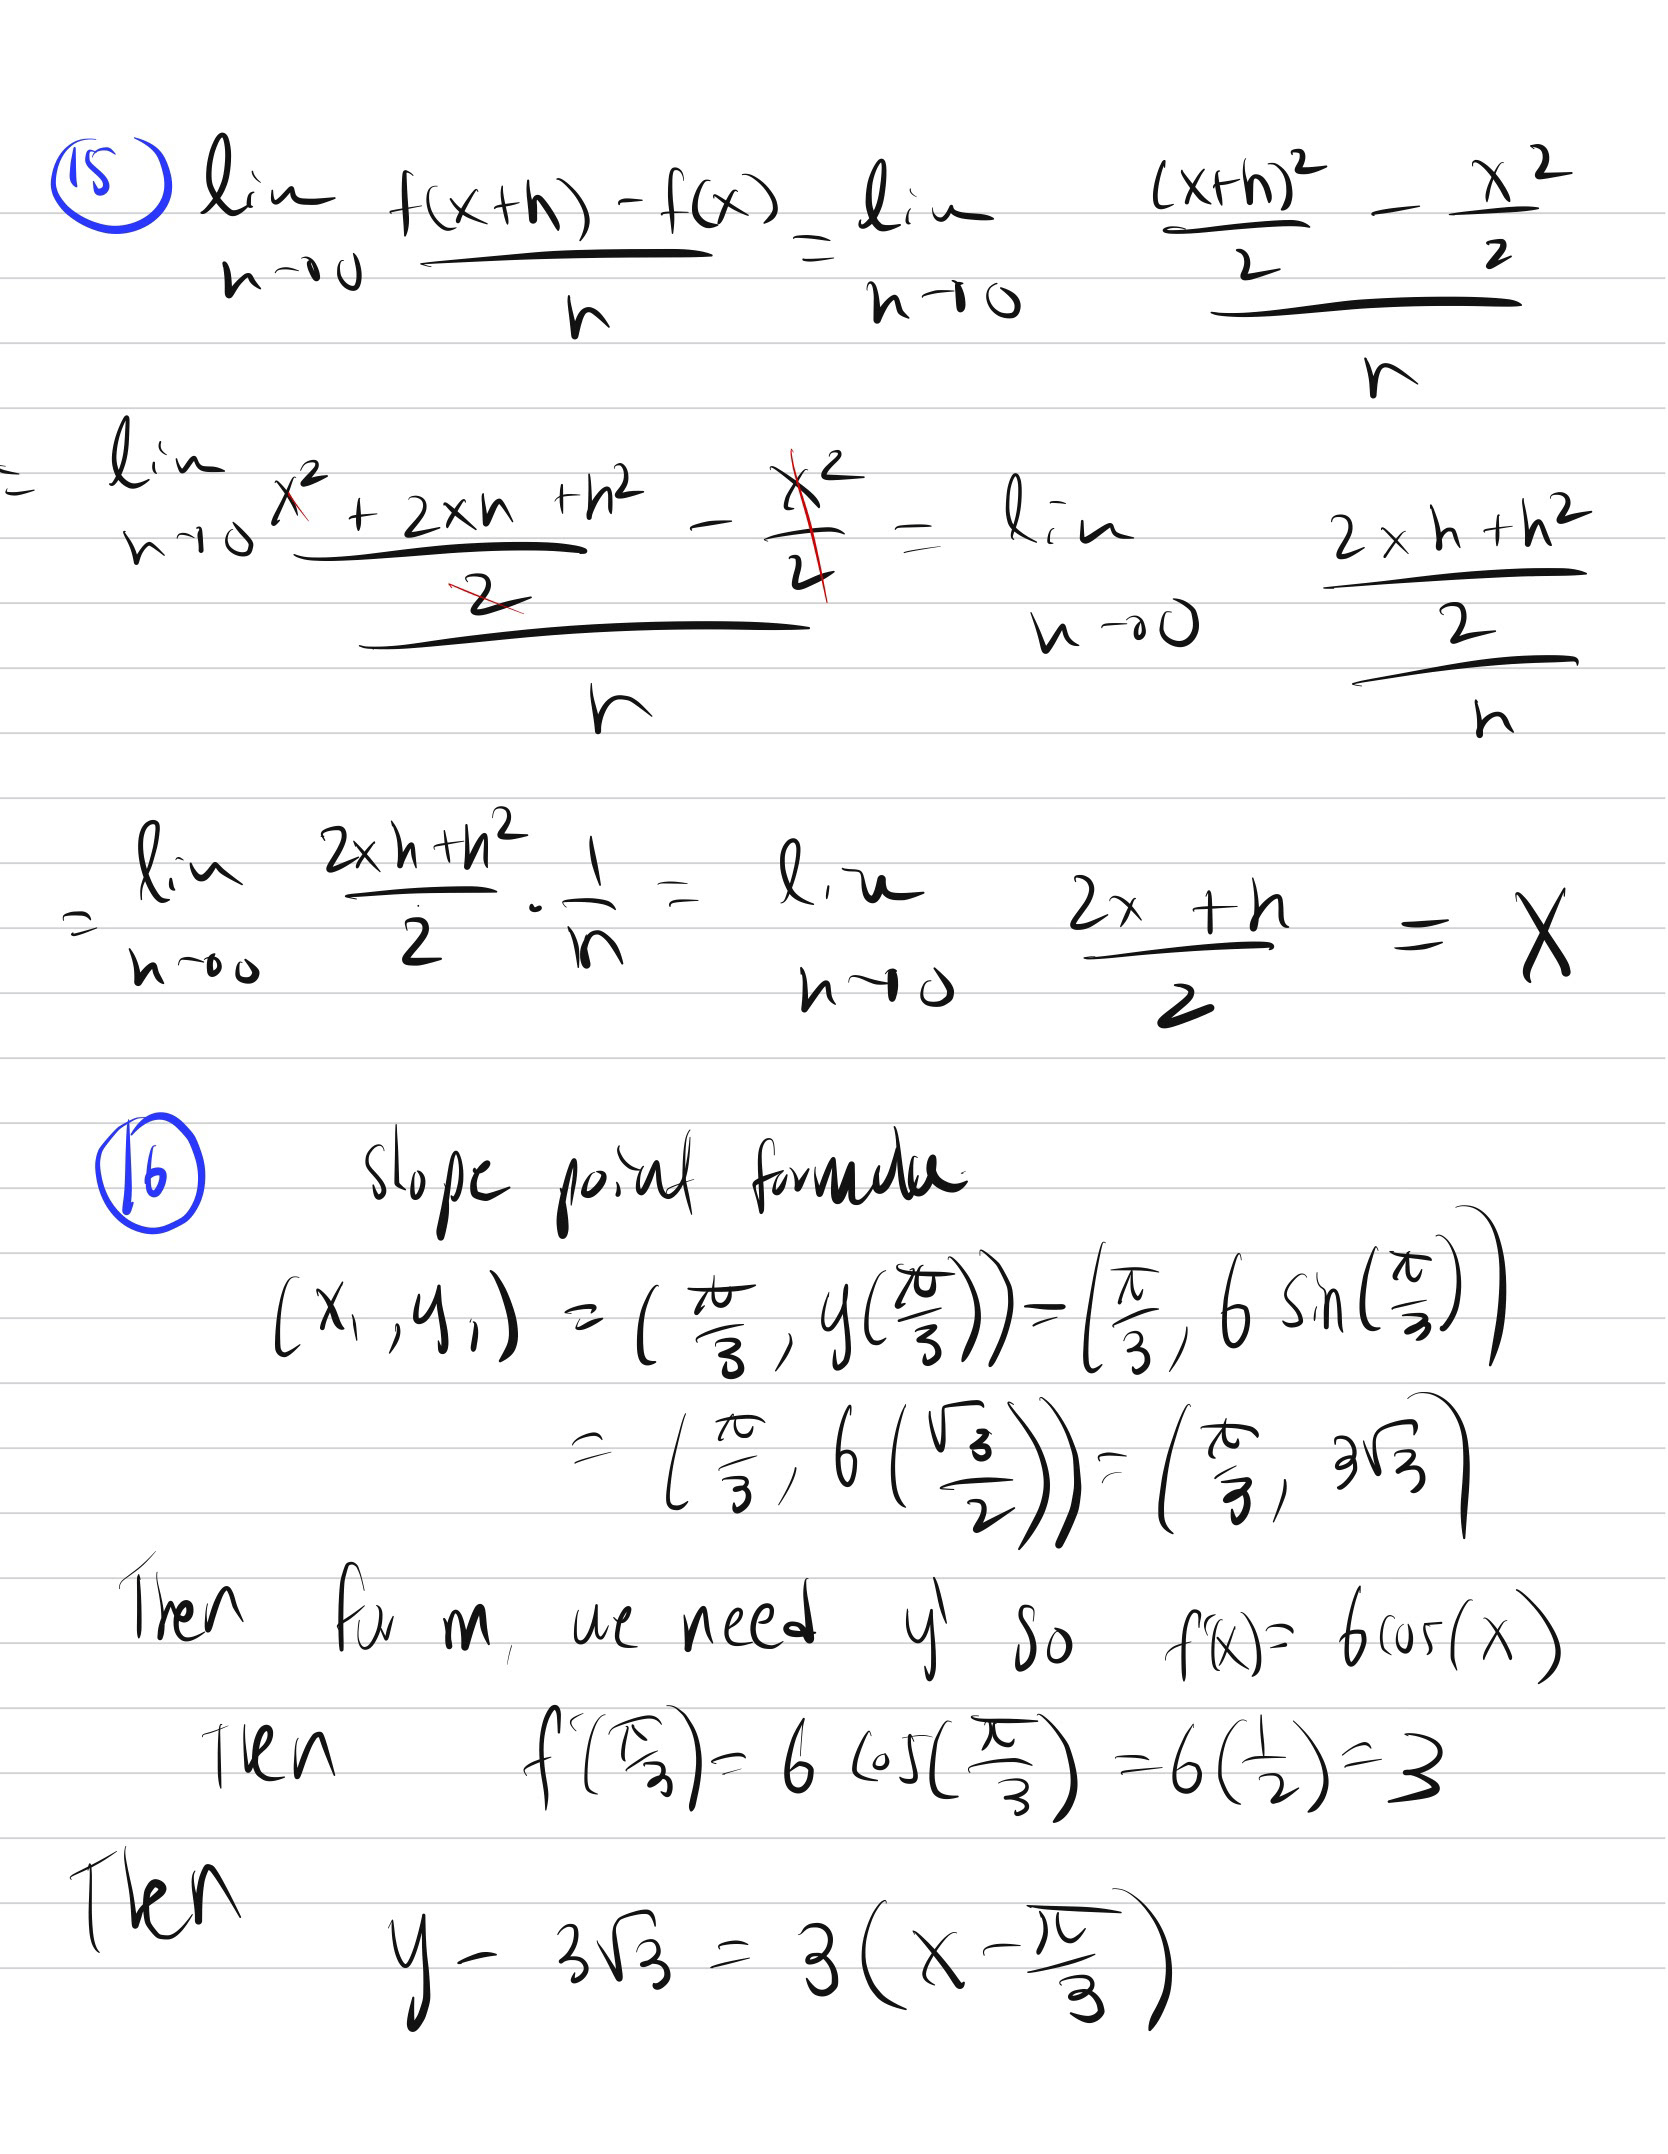 (15) lim h→0 (f(x+h) - f(x))/h = lim h→0 ((x+h)²/2 - x²/2)/h
= lim h→0 ((x² + 2xh + h²)/2 - x²/2)/h = lim h→0 ((2xh + h²)/2)/h
= lim h→0 (2xh + h²)/2 · 1/h = lim h→0 (2x + h)/2 = x
(16) slope point formula
(x₁, y₁) = (π/3, y(π/3)) = (π/3, 6 sin(π/3))
= (π/3, 6(√3/2)) = (π/3, 3√3)
Then for m, we need y' so f'(x) = 6cos(x)
Then f'(π/3) = 6 cos(π/3) = 6(1/2) = 3
Then
y - 3√3 = 3(x - π/3)